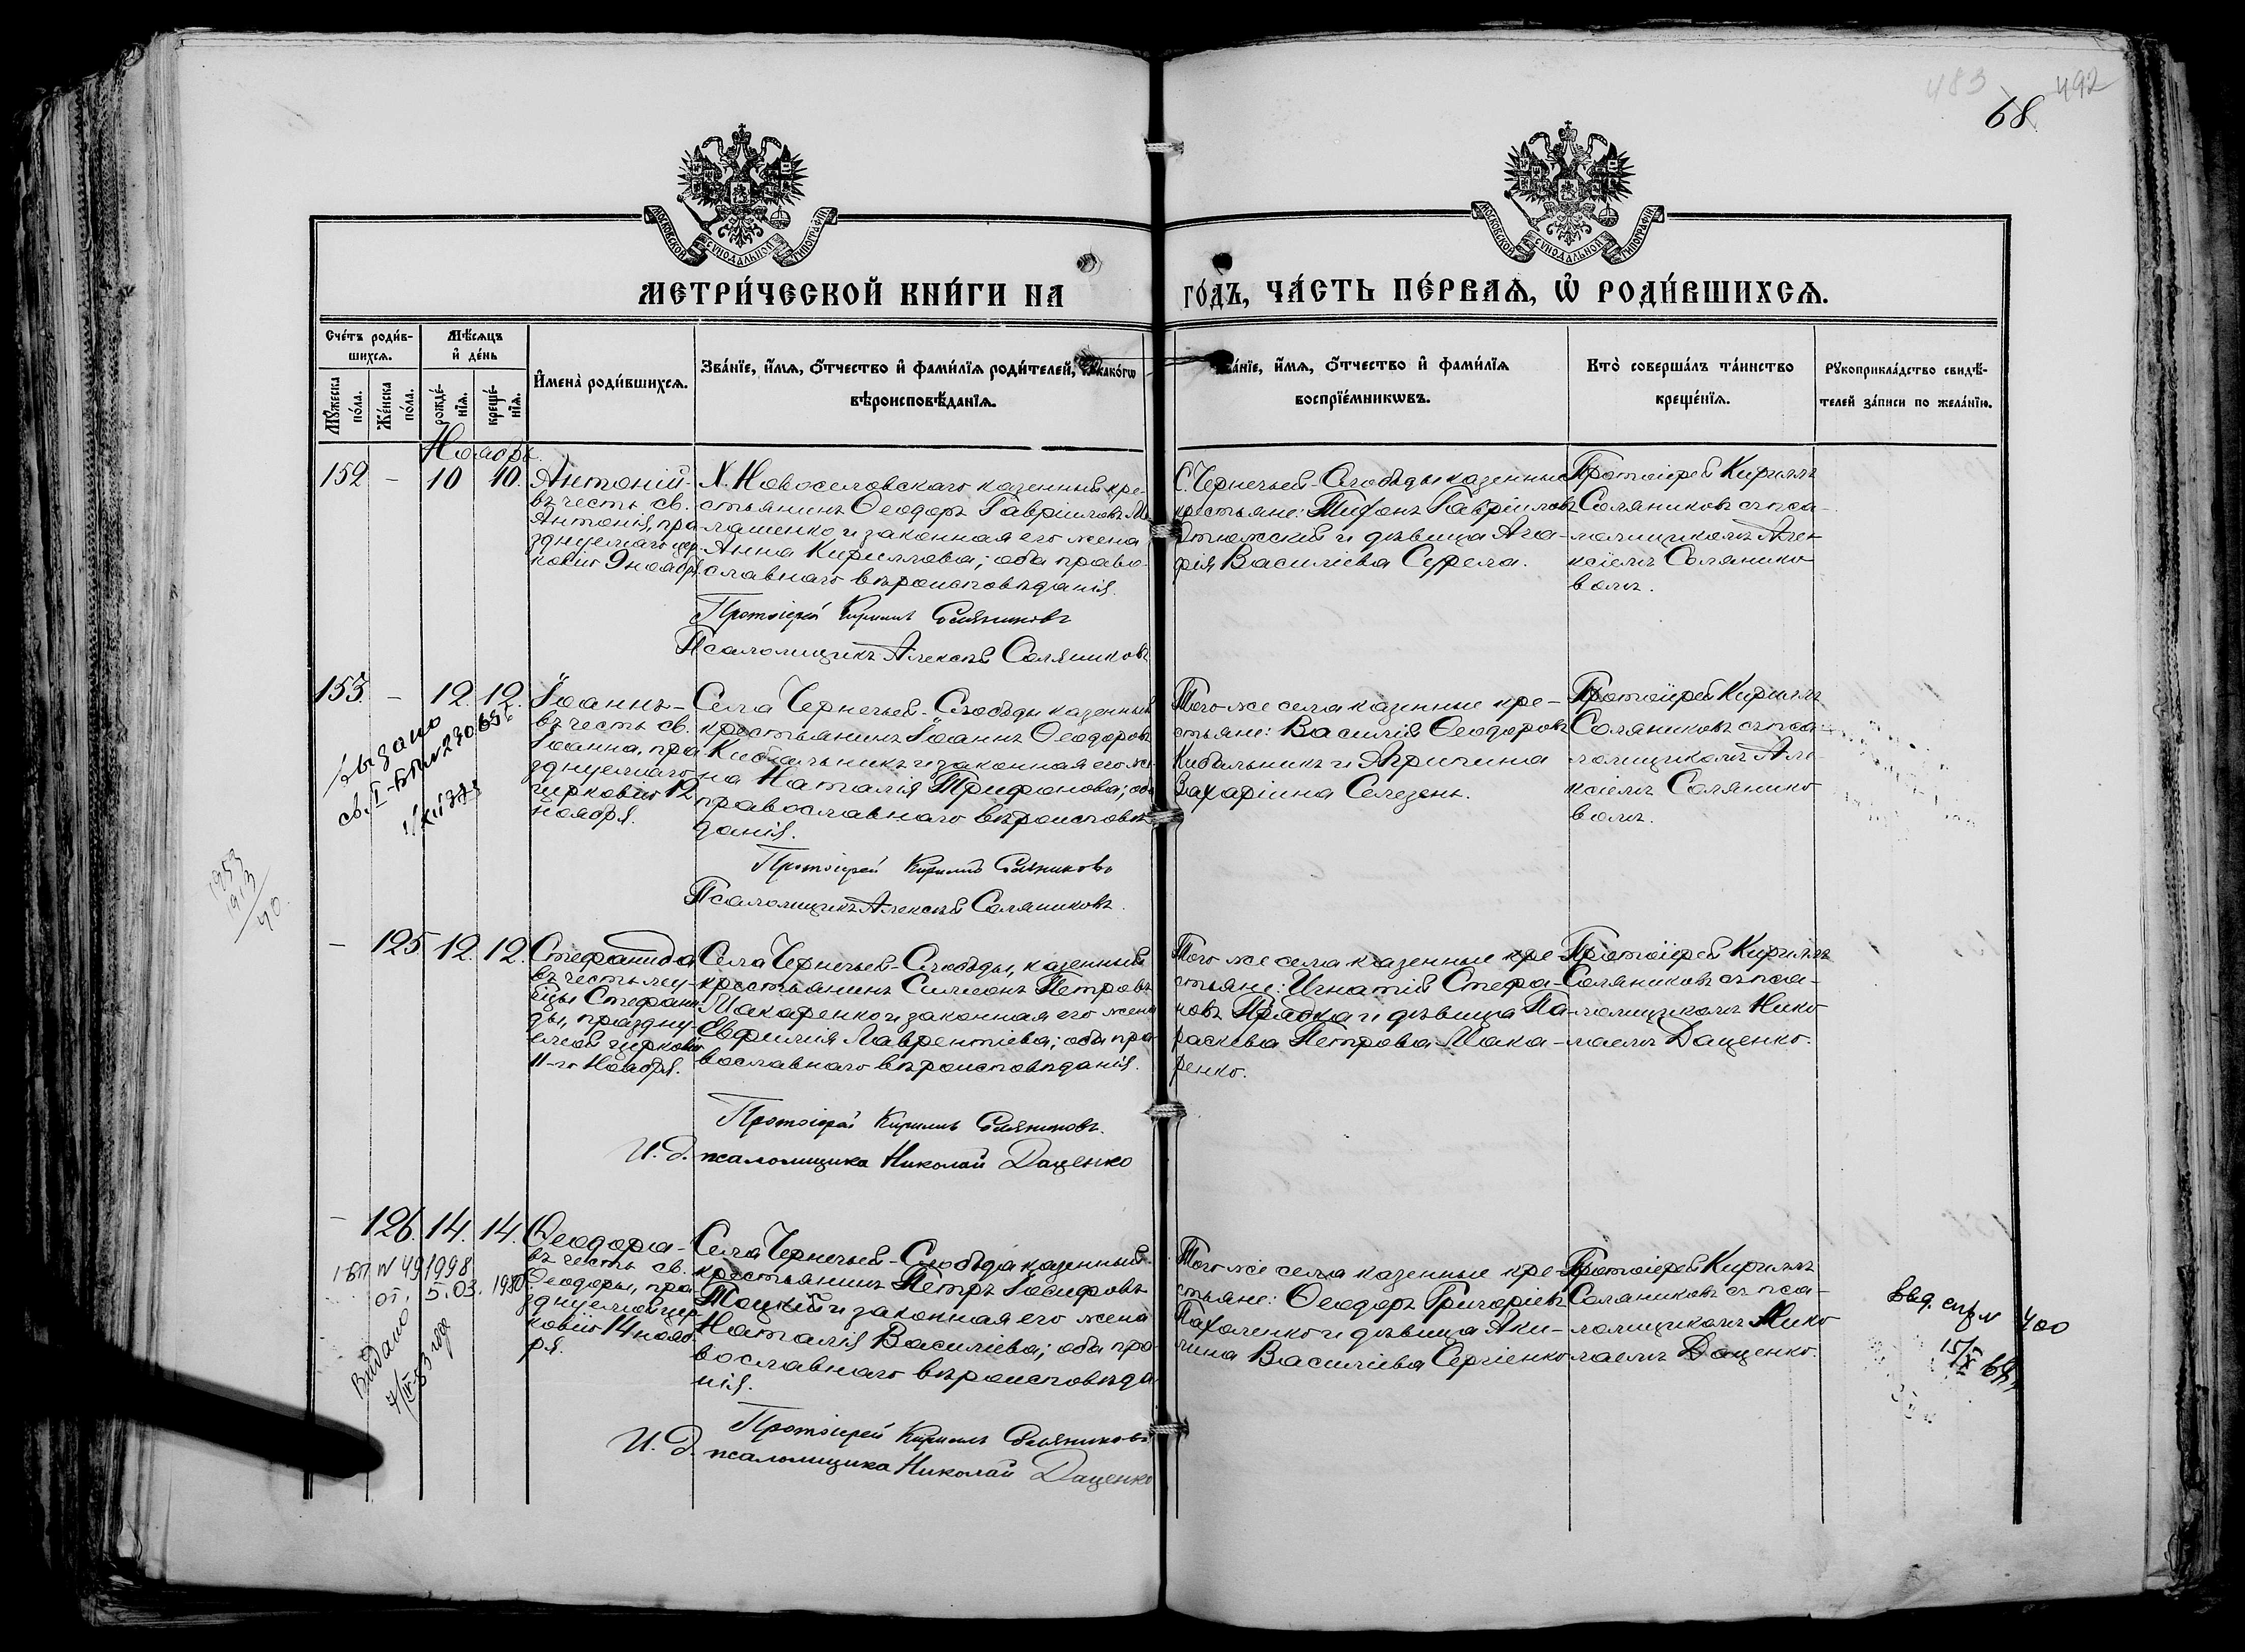 483
492
68
МОСКОВСКОЙ СѴНОДАЛЬНОЙ ТИПОГРАФІИ
МОСКОВСКОЙ СѴНОДАЛЬНОЙ ТИПОГРАФІИ
МЕТРИ́ЧЕСКОЙ КНИ́ГИ НА
ГО́ДЪ, ЧА́СТЬ ПЕ́РВАѦ, Ѡ҆ РОДИ́ВШИХСѦ.
Сче́тъ роди́в-
шихсѧ.
Мꙋжеска по́ла.
Же́нска по́ла.
Мѣ́сѧцъ
и҆ де́нь
рожде́-
нїѧ.
креще́-
нїѧ.
И҆мена̀ роди́вшихсѧ.
Зва́нїе, и҆́мѧ, ѻ҆́тчество и҆ фами́лїѧ роди́телей, и҆ како́гѡ
вѣроисповѣ́данїѧ.
Зва́нїе, и҆́мѧ, ѻ҆́тчество и҆ фами́лїѧ
воспрїе́мникѡвъ.
Кто̀ соверша́лъ та́инство
креще́нїѧ.
Рꙋкоприкла́дство свидѣ́-
телей за́писи по жела́нїю.
Ноябрь.
152 – 10 10.
Антоній-
въ честь св.
Антонія, пра
зднуемаго цер-
ковію 9 ноября
Х. Новоселовскаго казенный кре-
стьянинъ Ѳеодоръ Гавриловъ Ма-
лашенко и законная его жена
Анна Кириллова; оба право-
славнаго вѣроисповѣданія.
Протоіерей Кириллъ Соляниковъ
Псаломщикъ Алексѣй Соляниковъ
С. Чернечьей-Слободы казенные
крестьяне: Тихонъ Гавріиловъ
и дѣвица Ага-
фія Василіева
Протоіерей Кириллъ
Соляниковъ съ пса-
ломщикомъ Алек-
сіемъ Соляnико
вомъ.
153. – 12. 12.
Іоаннъ-
въ честь св.
Іоанна, пра
зднуемаго
церковію 12
ноября.
Села Чернечьей-Слободы казенный
крестьянинъ Іоаннъ Ѳеодоровъ
Кибальникъ и законная его же-
на Наталія Трифонова; оба
православнаго вѣроисповѣ-
данія.
Протоіерей Кириллъ Соляниковъ
Псаломщикъ Алексѣй Соляниковъ.
Того же села казенные кре-
стьяне: Василій Ѳеодоровъ
Кибальникъ и Агрипина
Захаріина Селезень.
Протоіерей Кириллъ
Соляниковъ съ пса-
ломщикомъ Але-
ксіемъ Солянико
вомъ.
– 125 12. 12.
Стефанида
въ честь му-
ч-цы Стефани-
ды, праздну-
емой церковію
11-го Ноября.
Села Чернечьей-Слободы, казенный
крестьянинъ Симеонъ Петровъ
Макаренко и законная его жена
Евфимія Лаврентіева; оба пра-
вославнаго вѣроисповѣданія.
Протоіерей Кириллъ Соляниковъ.
И. д. псаломщика Николай Даценко
Того же села казенные кре-
стьяне: Игнатій Стефа-
новъ и дѣвица Па-
раскева Петрова Мака-
ренко.
Протоіерей Кириллъ
Соляниковъ съ пса-
ломщикомъ Нико
лаемъ Даценко.
– 126. 14. 14.
Ѳеодора-
въ честь св.
Ѳеодоры, пра
зднуемой цер
ковію 14 нояб
ря.
Села Чернечьей-Слободы казенный
крестьянинъ Петръ Іосифовъ
Тоцкій и законная его жена
Наталія Василіева; оба пра-
вославнаго вѣроисповѣда
нія.
Протоіерей Кириллъ Соляниковъ
И. д. псаломщика Николай Даценко
Того же села казенные кре-
стьяне: Ѳеодоръ Григоріевъ
Пахоленко и дѣвица Аки-
лина Василіева Сергіенко
Протоіерей Кириллъ
Соляниковъ съ пса-
ломщикомъ Нико
лаемъ Даценко.
400